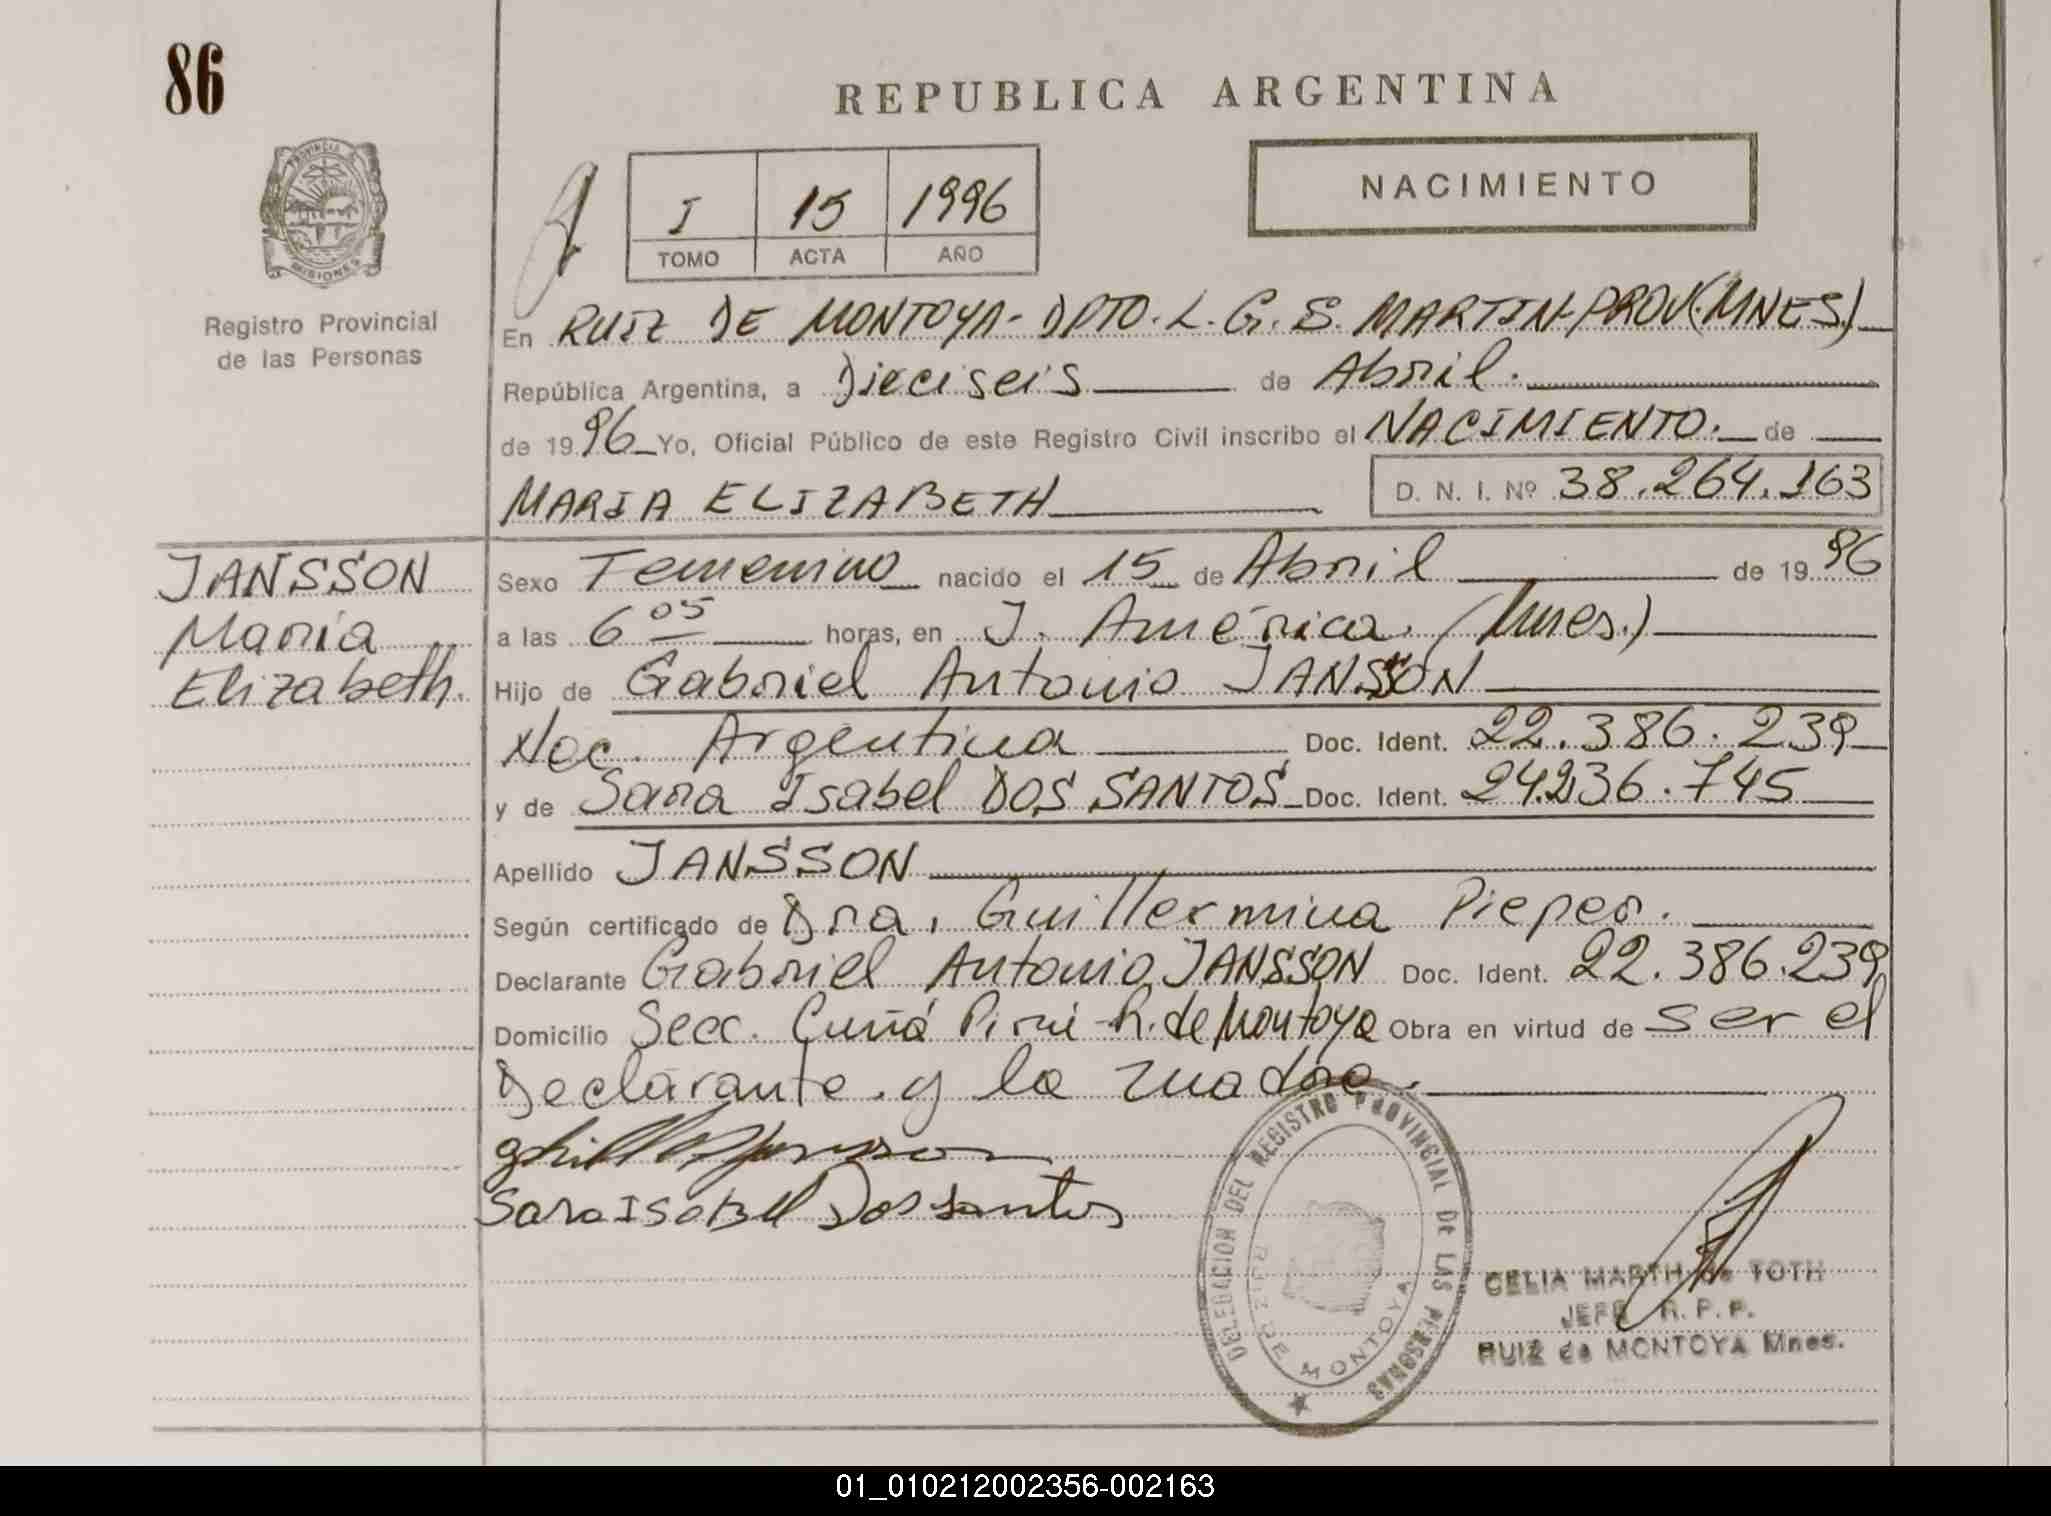 86
REPUBLICA ARGENTINA
NACIMIENTO
I 15 1996
TOMO ACTA AÑO
PROVINCIA D
MISIONES
Registro Provincial
de las Personas
En RUIZ DE MONTOYA - DPTO. L. G. S. MARTIN-PROV.(MNES.)
República Argentina, a Dieciseis de Abril.
de 1996 Yo, Oficial Público de este Registro Civil inscribo el NACIMIENTO. de
MARIA ELIZABETH D. N. I. Nº 38.264.163
JANSSON
María
Elizabeth.
Sexo Femenino nacido el 15 de Abril de 1996
a las 6 05 horas, en J. América. (Mnes.)
Hijo de Gabriel Antonio JANSSON
Nac. Argentina Doc. Ident. 22.386.239
y de Sara Isabel DOS SANTOS Doc. Ident. 24.236.745
Apellido JANSSON
Según certificado de Dra. Guillermina Pieper.
Declarante Gabriel Antonio JANSSON Doc. Ident. 22.386.239
Domicilio Secc. Cuñá Pirú - R. de Montoya Obra en virtud de ser el
Declarante. y la madre.
Sara Isabel Dos santos
DELEGACION DEL REGISTRO PROVINCIAL DE LAS PERSONAS
RUIZ DE MONTOYA
CELIA MARTH de TOTH
JEFE R. P. P.
RUIZ de MONTOYA Mnes.
01_010212002356-002163